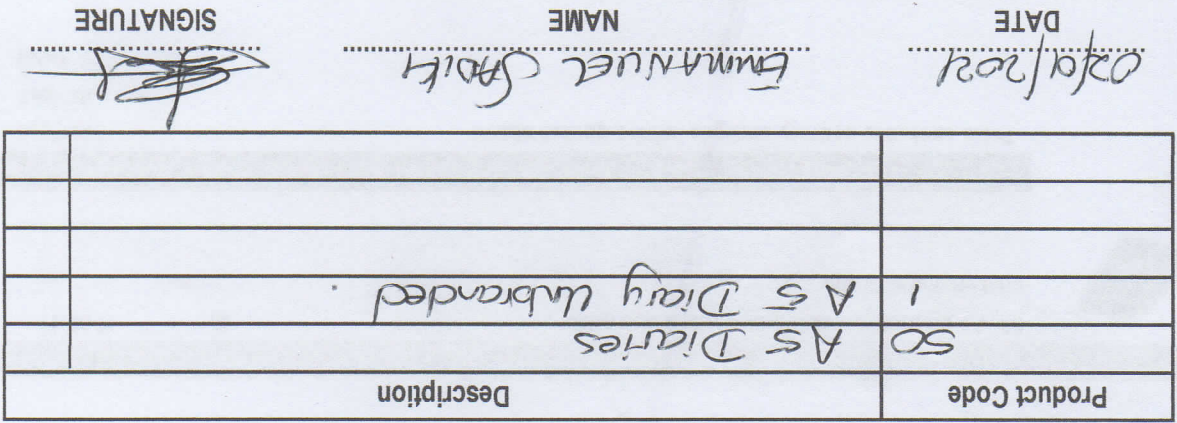 Product Code Description
50 A5 Diaries
1 A 5 Diary Unbranded.
02/01/2021 EMMANUEL SADIKI
DATE NAME SIGNATURE